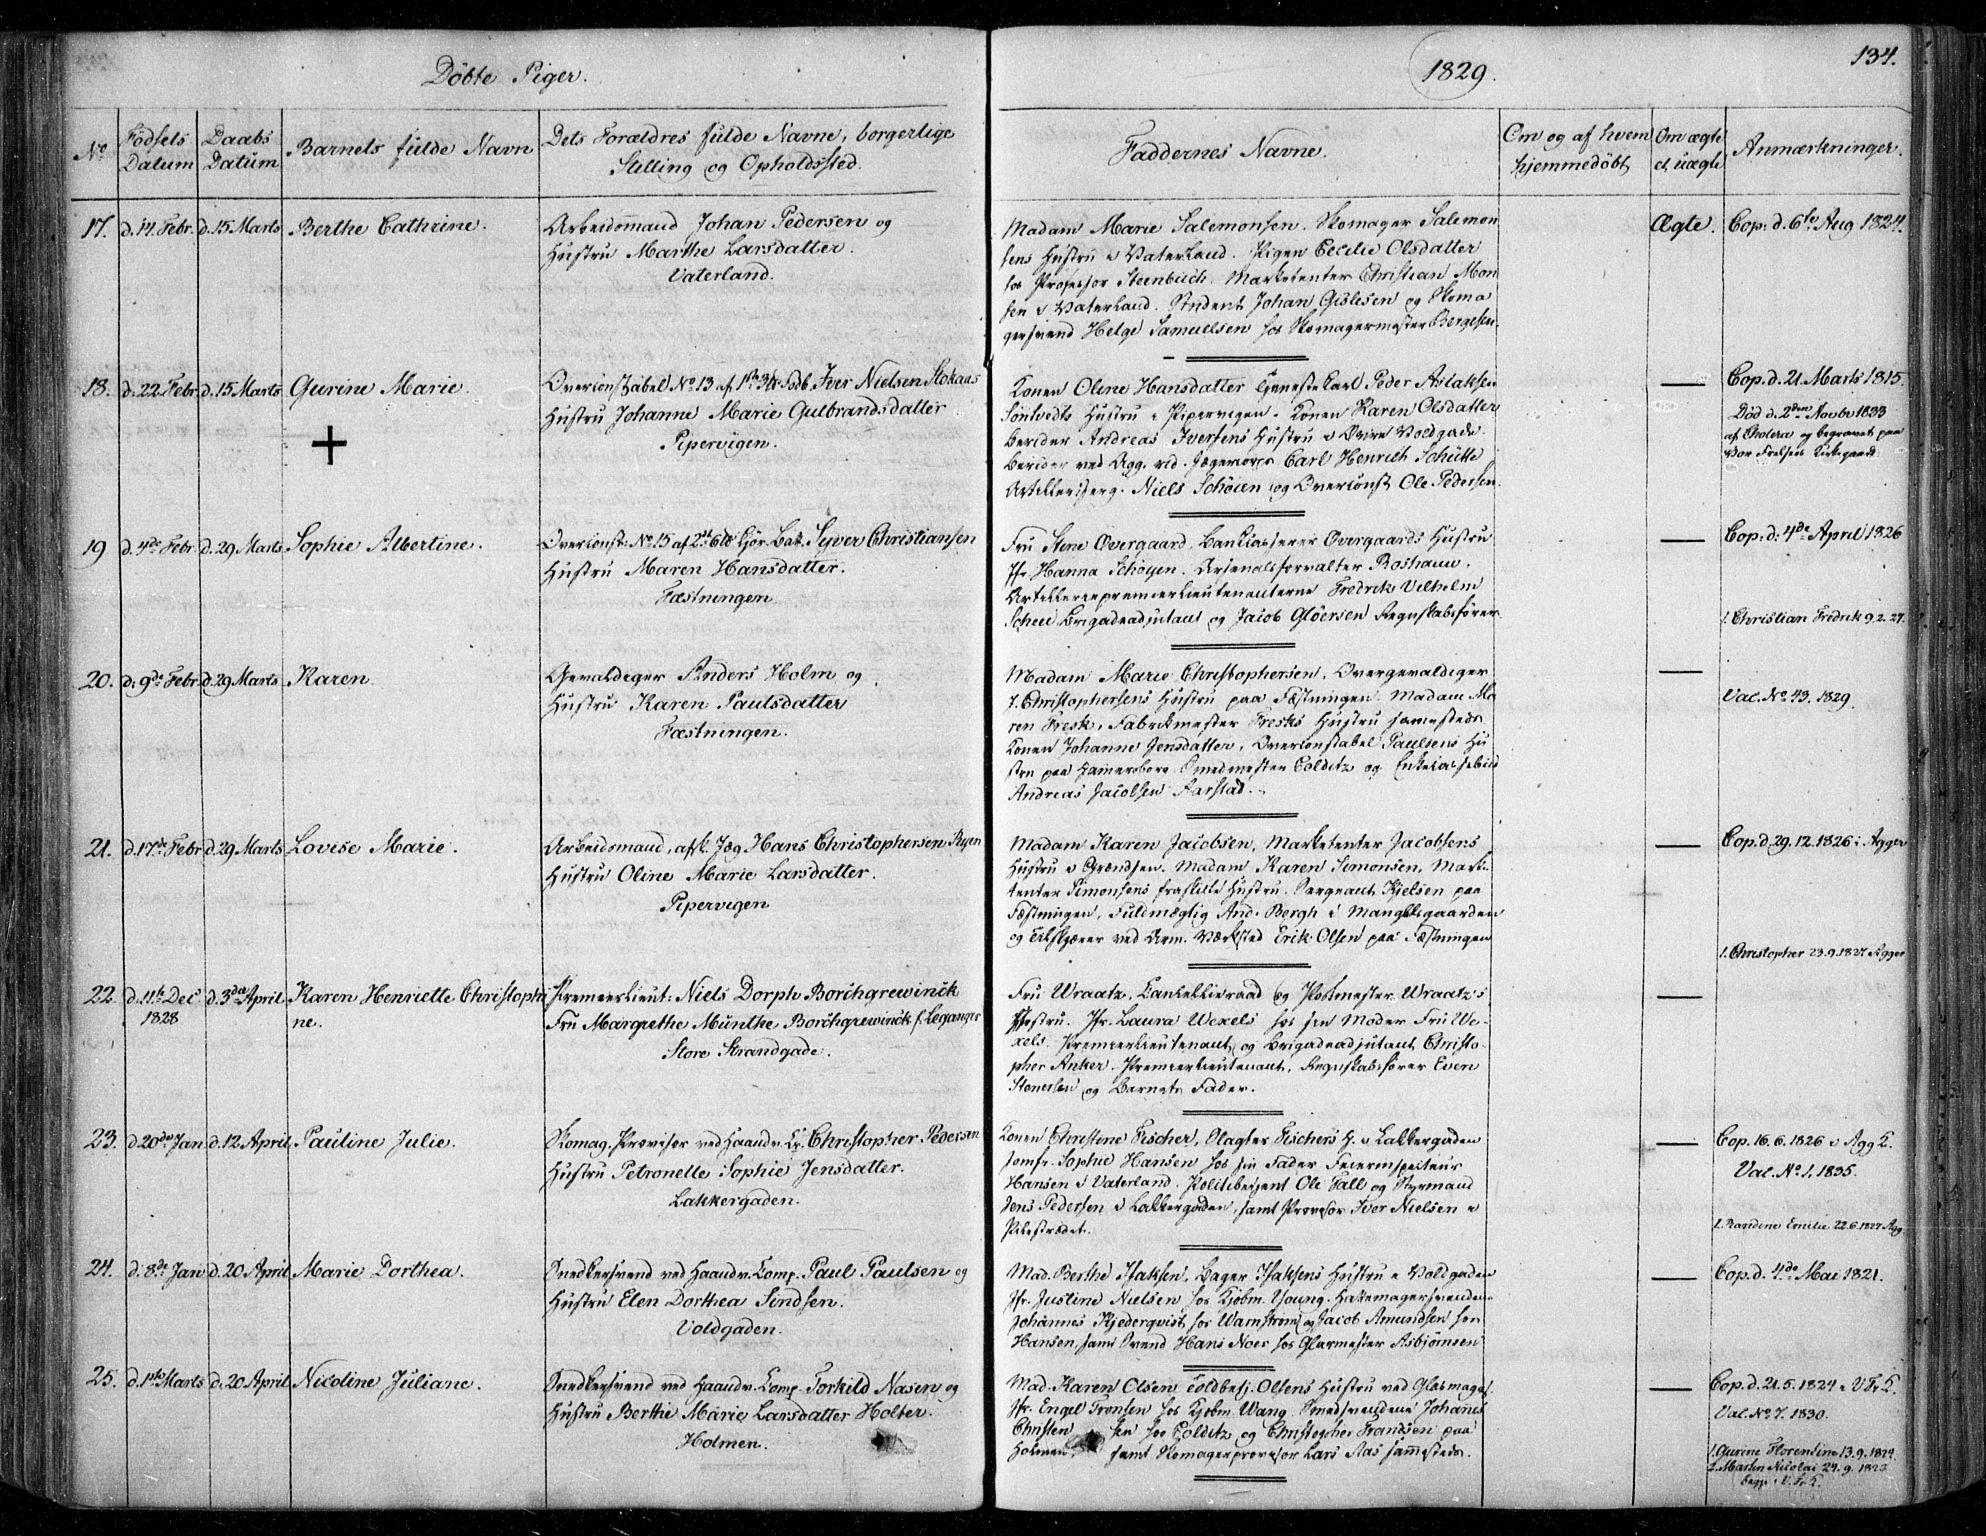 Döbte Piger.
1829.
134.
No
Födsels Datum
Daabs Datum
Barnets fulde Navn
Dets Forældres fulde Navne, borgerlige
Stilling og Opholdssted.
Faddernes Navne.
Om og af hvem
hjemmedöbt
Om ægte
el. uægte
Anmærkninger.
17. d. 14. Febr. d. 15 Marts Berthe Cathrine.
Arbeidsmand Johan Pedersen og
Hustru Marthe Larsdatter.
Vaterland.
Madam Marie Salemonsen. Skomager Salemon
sens Hustru i Vaterland. Pigen Cecilie Olsdatter
hos Professor Steenbuch. Marketenter Christian Mon
sen i Vaterland. Student Johan Gislesen og Skoma
gersvend Helge Samuelsen hos Skomagermester Bergesen.
Ægte.
Cop: d. 6te Aug 1824.
18. d. 22 Febr. d. 15 Marts Gurine Marie.
+
Overconstabel No. 13 af 1ste 3 Fodb. Iver Nielsen Stokaas
Hustru Johanne Marie Gulbrandsdatter
Pipervigen.
Konen Oline Hansdatter Peder Aslaksen
Hustru i Pipervigen. Konen Karen Olsdatter
Berider Andreas Iversens Hustru i Övre Voldgade.
Berider ved Agg. rid. Carl Henrich Schütte
Niels Schöien og Overconst Ole Pedersen.
Cop. d. 21 Marts 1815.
Död d. 2den Novbr 1833
af Cholera og begravet paa
Vor Frelsers Kirkegaard
19 d. 4de Febr. d. 29 Marts Sophie Albertine.
Overconst: No. 15 af 2det 6te Kjör. Bat. Syver Christiansen
Hustru Maren Hansdatter.
Fæstningen.
Fru Stene Overgaard. Bankkasserer Overgaards Hustru
Jfr. Hanna Schöyen. Arsenalforvalter Roshauw.
Artilleriepremierlieutenanterne Fredrik Vilhelm
Scheel Brigadeadjutant og Jacob Glöersen Regnskabsförer
Cop: d: 4de April 1826
1. Christian Fredrik 9.2.27.
20. d: 9de Febr. d. 29 Marts Karen
Gevaldiger Anders Holm og
Hustru Karen Paulsdatter
Fæstningen.
Madam Marie Christophersen, Overgevaldiger
J. Christophersens Hustru paa Fæstningen. Madam Ma
ren Fresk, Fabrikmester Fresks Hustru sammesteds
Konen Johanne Jensdatter, Overconstabel Paulsens Hu
stru paa Hammersborg. Smedmester Colditz og
Andreas Jacobsen Aarstad.
Val. No. 43. 1829.
21. d. 17de Febr d. 29 Marts Lovise Marie.
Arbeidsmand, afsk. Jæg Hans Christophersen Ryen
Hustru Oline Marie Larsdatter.
Pipervigen
Madam Karen Jacobsen, Marketenter Jacobsens
Hustru i Grændsen. Madam Karen Simonsen, Marke
tenter Simonsens fraskilte Hustru. Sergeant Kjelsen paa
Fæstningen, Fuldmægtig And. Bergh i Mangelsgaarden
og ved Arm. Værksted Erik Olsen paa Fæstningen
Cop. d 29.12.1826 i Agger
1. Christopher 23.9.1827 Agger
22. d. 11te Dec 1828 d. 3die April Karen Henriette Christophi
ne.
Premierlieut: Niels Dorph Borchgrewinck
Fru Margrethe Munthe Borchgrewinck f. Leganger
Store Strandgade.
Fru Wraatz. Cancelliraad og Postmester Wraatz's
Hustru. Jfr. Laura Wexels hos sin Moder Fru We-
xels. Premierlieutenant og Brigadeadjutant Christo-
pher Anker. Premierlieutenant, Regnskabsförer Even
Stenersen og Barnets Fader.
23. d 20de Jan d. 12 April Pauline Julie.
Skomag. Provisor ved Haandv. Cp. Christopher Pedersen
Hustru Petronelle Sophie Jensdatter.
Lakkergaden.
Konen Christine Fischer, Olagter Fischers H. i Lakkergaden
Jomfr. Sophie Hansen hos sin Fader Feierinspecteur
Hansen i Vaterland. Politibetjent Ole Fall og Styrmand
Jens Pedersen i Lakkergaden, samt Provisor Iver Nielsen i
Pilestrædet.
Cop. 16.6.1826 i Agg K.
Val. No. 1. 1835.
1. Randine Emilie 22.6.1827 Agg
24. d: 8de Jan d. 20 April Marie Dorthea.
Snedkersvend ved Haandv. Comp. Paul Paulsen og
Hustru Elen Dorthea Sindsen.
Voldgaden.
Mad. Berthe Isaksen, Bager Isaksens Hustru i Voldgaden
Jfr. Justine Nielsen hos Kjöbm. Young. Hattemagersvendene
Johannes Kjederqvist hos Warnström og Jacob Amundsen hos
Hansen, samt Svend Hans Noes hos Glarmester Asbjörnsen
Cop. d. 4de Mai 1821.
25. d. 1ste Marts d. 20 April Nicoline Juliane.
Snedkersvend ved Haandv. Comp. Torkild Nasen og
Hustru Berthe Marie Larsdatter Holter.
Holmen.
Mad. Karen Olsen Toldbetj. Olsens Hustru ved Glasmagas.
Jfr. Engel Tronsen hos Kjöbm. Wang. Smedsvendene Johannes
Christensen hos Colditz og Christopher Frandsen paa
Holmen, samt Skomagerprovisor Lars Aas sammesteds.
Cop. d. 21.5.1824 i V Fr K.
Val. No 7. 1830.
1. Gurine Florentine 13.9.1824
2. Martin Nicolai 24.9.
begge i V. Fr. K.